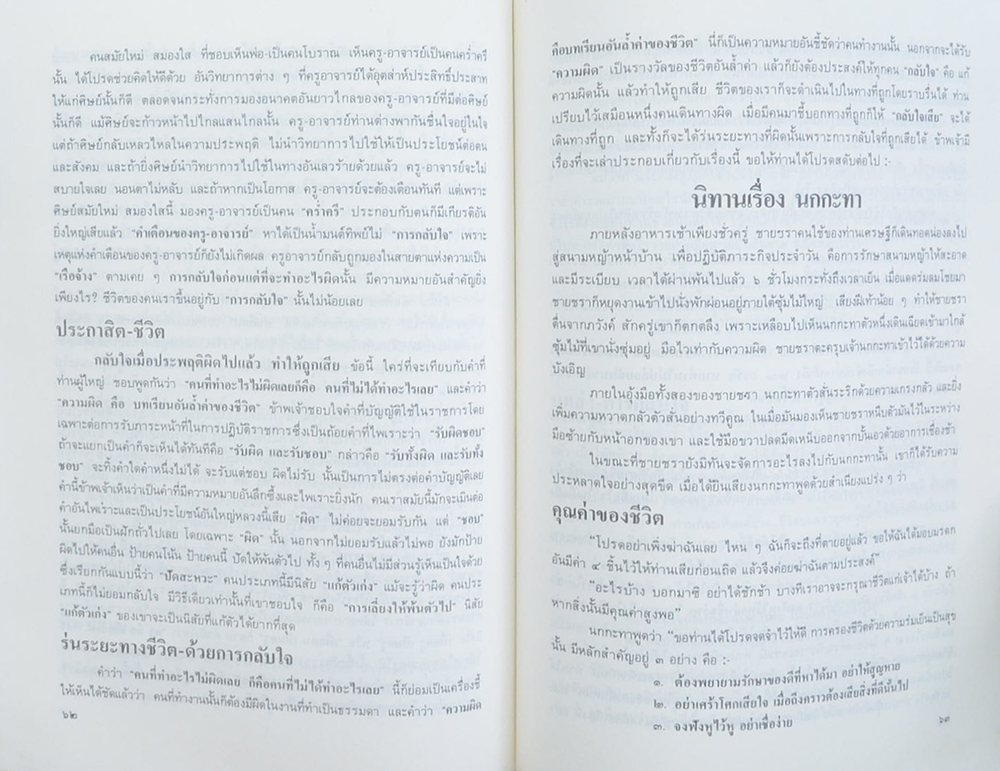 คนสมัยใหม่ สมองใส ที่ชอบเห็นพ่อ-เป็นคนโบราณ เห็นครู-อาจารย์เป็นคนคร่ำครึ
นั้น ได้โปรดช่วยคิดให้ดีด้วย อันวิทยาการต่าง ๆ ที่ครูอาจารย์ได้อุตส่าห์ประสิทธิ์ประสาท
ให้แก่ศิษย์นั้นก็ดี ตลอดจนกระทั่งการมองอนาคตอันยาวไกลของครู-อาจารย์ที่มีต่อศิษย์
นั้นก็ดี แม้ศิษย์จะก้าวหน้าไปไกลแสนไกลนั้น ครู-อาจารย์ท่านต่างพากันชื่นใจอยู่ในใจ
แต่ถ้าศิษย์กลับเหลวไหลในความประพฤติ ไม่นำวิทยาการไปใช้ให้เป็นประโยชน์ต่อตน
และสังคม และถ้ายิ่งศิษย์นำวิทยาการไปใช้ในทางอันเลวร้ายด้วยแล้ว ครู-อาจารย์จะไม่
สบายใจเลย นอนตาไม่หลับ และถ้าหากเป็นโอกาส ครู-อาจารย์จะต้องเตือนทันที แต่เพราะ
ศิษย์สมัยใหม่ สมองใสนี้ มองครู-อาจารย์เป็นคน “คร่ำครึ” ประกอบกับตนก็มีเกียรติอัน
ยิ่งใหญ่เสียแล้ว “คำเตือนของครู-อาจารย์” หาได้เป็นน้ำมนต์ทิพย์ไม่ “การกลับใจ” เพราะ
เหตุแห่งคำเตือนของครู-อาจารย์ก็ยังไม่เกิดผล ครูอาจารย์กลับถูกมองในสายตาแห่งความเป็น
“เรือจ้าง” ตามเคย ๆ การกลับใจก่อนแต่ที่จะทำอะไรผิดนั้น มีความหมายอันสำคัญยิ่ง
เพียงไร? ชีวิตของคนเราขึ้นอยู่กับ “การกลับใจ” นั้นไม่น้อยเลย
ประกาสิต-ชีวิต
กลับใจเมื่อประพฤติผิดไปแล้ว ทำให้ถูกเสีย ข้อนี้ ใคร่ที่จะเทียบกับคำที่
ท่านผู้ใหญ่ ชอบพูดกันว่า “คนที่ทำอะไรไม่ผิดเลยก็คือ คนที่ไม่ได้ทำอะไรเลย” และคำว่า
“ความผิด คือ บทเรียนอันล้ำค่าของชีวิต” ข้าพเจ้าชอบใจคำที่บัญญัติใช้ในราชการโดย
เฉพาะต่อการรับภาระหน้าที่ในการปฏิบัติราชการซึ่งเป็นถ้อยคำที่ไพเราะว่า “รับผิดชอบ”
ถ้าจะแยกเป็นคำก็จะเห็นได้ทันทีคือ “รับผิด และรับชอบ” กล่าวคือ “รับทั้งผิด และรับทั้ง
ชอบ” จะทิ้งคำใดคำหนึ่งไม่ได้ จะรับแต่ชอบ ผิดไม่รับ นั้นเป็นการไม่ตรงต่อคำบัญญัติเลย
คำนี้ข้าพเจ้าเห็นว่าเป็นคำที่มีความหมายอันลึกซึ้งและไพเราะยิ่งนัก คนเราสมัยนี้มักจะเมินต่อ
คำอันไพเราะและเป็นประโยชน์อันใหญ่หลวงนี้เสีย “ผิด” ไม่ค่อยจะยอมรับกัน แต่ “ชอบ”
นั้นยกมือเป็นฝักถั่วไปเลย โดยเฉพาะ “ผิด” นั้น นอกจากไม่ยอมรับแล้วไม่พอ ยังมักป้าย
ผิดไปให้คนอื่น ป้ายคนโน้น ป้ายคนนี้ ปัดให้พ้นตัวไป ทั้ง ๆ ที่คนอื่นไม่มีส่วนรู้เห็นเป็นใจด้วย
ซึ่งเรียกกันแบบนี้ว่า “ปัดสะหวะ” คนประเภทนี้มีนิสัย “แก้ตัวเก่ง” แม้จะรู้ว่าผิด คนประ
เภทนี้ก็ไม่ยอมกลับใจ มีวิธีเดียวเท่านั้นที่เขาชอบใจ ก็คือ “การเลี่ยงให้พ้นตัวไป” นิสัย
“แก้ตัวเก่ง” ของเขาจะเป็นนิสัยที่แก้ตัวได้ยากที่สุด
ร่นระยะทางชีวิต-ด้วยการกลับใจ
คำว่า “คนที่ทำอะไรไม่ผิดเลย ก็คือคนที่ไม่ได้ทำอะไรเลย” นี้ก็ย่อมเป็นเครื่องชี้
ให้เห็นได้ชัดแล้วว่า คนที่ทำงานนั้นก็ต้องมีผิดในงานที่ทำเป็นธรรมดา และคำว่า “ความผิด
๖๒
คือบทเรียนอันล้ำค่าของชีวิต” นี่ก็เป็นความหมายอันชี้ชัดว่าคนทำงานนั้น นอกจากจะได้รับ
“ความผิด” เป็นรางวัลของชีวิตอันล้ำค่า แล้วก็ยังต้องประสงค์ให้ทุกคน “กลับใจ” คือ แก้
ความผิดนั้น แล้วทำให้ถูกเสีย ชีวิตของเราก็จะดำเนินไปในทางที่ถูกโดยราบรื่นได้ ท่าน
เปรียบไว้เสมือนหนึ่งคนเดินทางผิด เมื่อมีคนมาชี้บอกทางที่ถูกก็ให้ “กลับใจเสีย” จะได้
เดินทางที่ถูก และทั้งก็จะได้ร่นระยะทางที่ผิดนั้นเพราะการกลับใจที่ถูกเสียได้ ข้าพเจ้ามี
เรื่องที่จะเล่าประกอบเกี่ยวกับเรื่องนี้ ขอให้ท่านได้โปรดสดับต่อไป :-
นิทานเรื่อง นกกะทา
ภายหลังอาหารเช้าเพียงชั่วครู่ ชายชราคนใช้ของท่านเศรษฐีก็เดินทอดน่องลงไป
สู่สนามหญ้าหน้าบ้าน เพื่อปฏิบัติภาระกิจประจำวัน คือการรักษาสนามหญ้าให้สะอาด
และมีระเบียบ เวลาได้ผ่านพ้นไปแล้ว ๖ ชั่วโมงกระทั่งถึงเวลาเย็น เมื่อแดดร่มลมโชยมา
ชายชราก็หยุดงานเข้าไปนั่งพักผ่อนอยู่ภายใต้ซุ้มไม้ใหญ่ เสียงฝีเท้าน้อย ๆ ทำให้ชายชรา
ตื่นจากภวังค์ สักครู่เขาก็ตกตลึง เพราะเหลือบไปเห็นนกกะทาตัวหนึ่งเดินเฉียดเข้ามาใกล้
ซุ้มไม้ที่เขานั่งซุ่มอยู่ มือไวเท่ากับความผิด ชายชราตะครุบเจ้านกกะทาเข้าไว้ได้ด้วยความ
บังเอิญ
ภายในอุ้งมือทั้งสองของชายชรา นกกะทาตัวสั่นระริกด้วยความเกรงกลัว และยิ่ง
เพิ่มความหวาดกลัวตัวสั่นอย่างทวีคูณ ในเมื่อมันมองเห็นชายชราหนีบตัวมันไว้ในระหว่าง
มือซ้ายกับหน้าอกของเขา และใช้มือขวาปลดมีดเหน็บออกจากบั้นเอวด้วยอาการเชื่องช้า
ในขณะที่ชายชรายังมิทันจะจัดการอะไรลงไปกับนกกะทานั้น เขาก็ได้รับความ
ประหลาดใจอย่างสุดขีด เมื่อได้ยินเสียงนกกะทาพูดด้วยสำเนียงแปร่ง ๆ ว่า
คุณค่าของชีวิต
“โปรดอย่าเพิ่งฆ่าฉันเลย ไหน ๆ ฉันก็จะถึงที่ตายอยู่แล้ว ขอให้ฉันได้มอบมรดก
อันมีค่า ๔ ชิ้นไว้ให้ท่านเสียก่อนเถิด แล้วจึงค่อยฆ่าฉันตามประสงค์”
“อะไรบ้าง บอกมาซิ อย่าได้ชักช้า บางทีเราอาจจะกรุณาชีวิตแก่เจ้าได้บ้าง ถ้า
หากสิ่งนั้นมีคุณค่าสูงพอ”
นกกะทาพูดว่า “ขอท่านได้โปรดจดจำไว้ให้ดี การครองชีวิตด้วยความร่มเย็นเป็นสุข
นั้น มีหลักสำคัญอยู่ ๓ อย่าง คือ :-
๑. ต้องพยายามรักษาของดีที่หาได้มา อย่าให้สูญหาย
๒. อย่าเศร้าโศกเสียใจ เมื่อถึงคราวต้องเสียสิ่งที่ดีนั้นไป
๓. จงฟังหูไว้หู อย่าเชื่อง่าย
๖๓